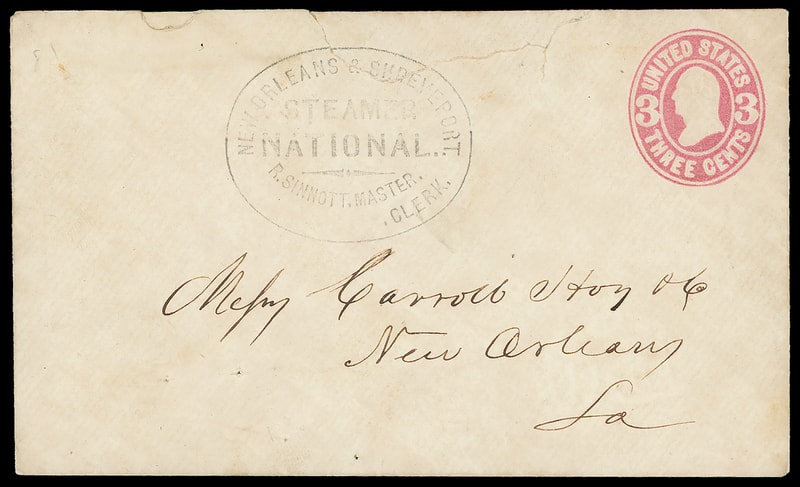 NEW ORLEANS & SHREVEPORT
STEAMER
NATIONAL.
R. SINNOTT, MASTER.
.CLERK.
UNITED STATES
3 3
THREE CENTS
Messrs Carroll Hoy & Co
New Orleans
La